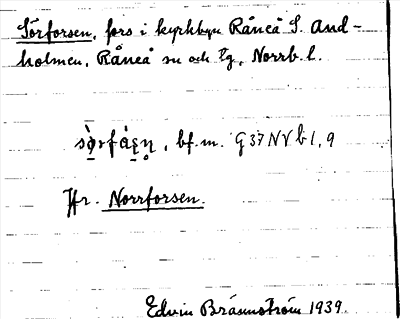 Sörforsen, fors i kyrkbyn Råneå S. And-
holmen, Råneå sn och tg, Norrb. l.
bf. m. G 37 NV b 1, 9
Jfr. Norrforsen.
Edvin Brännström 1939.